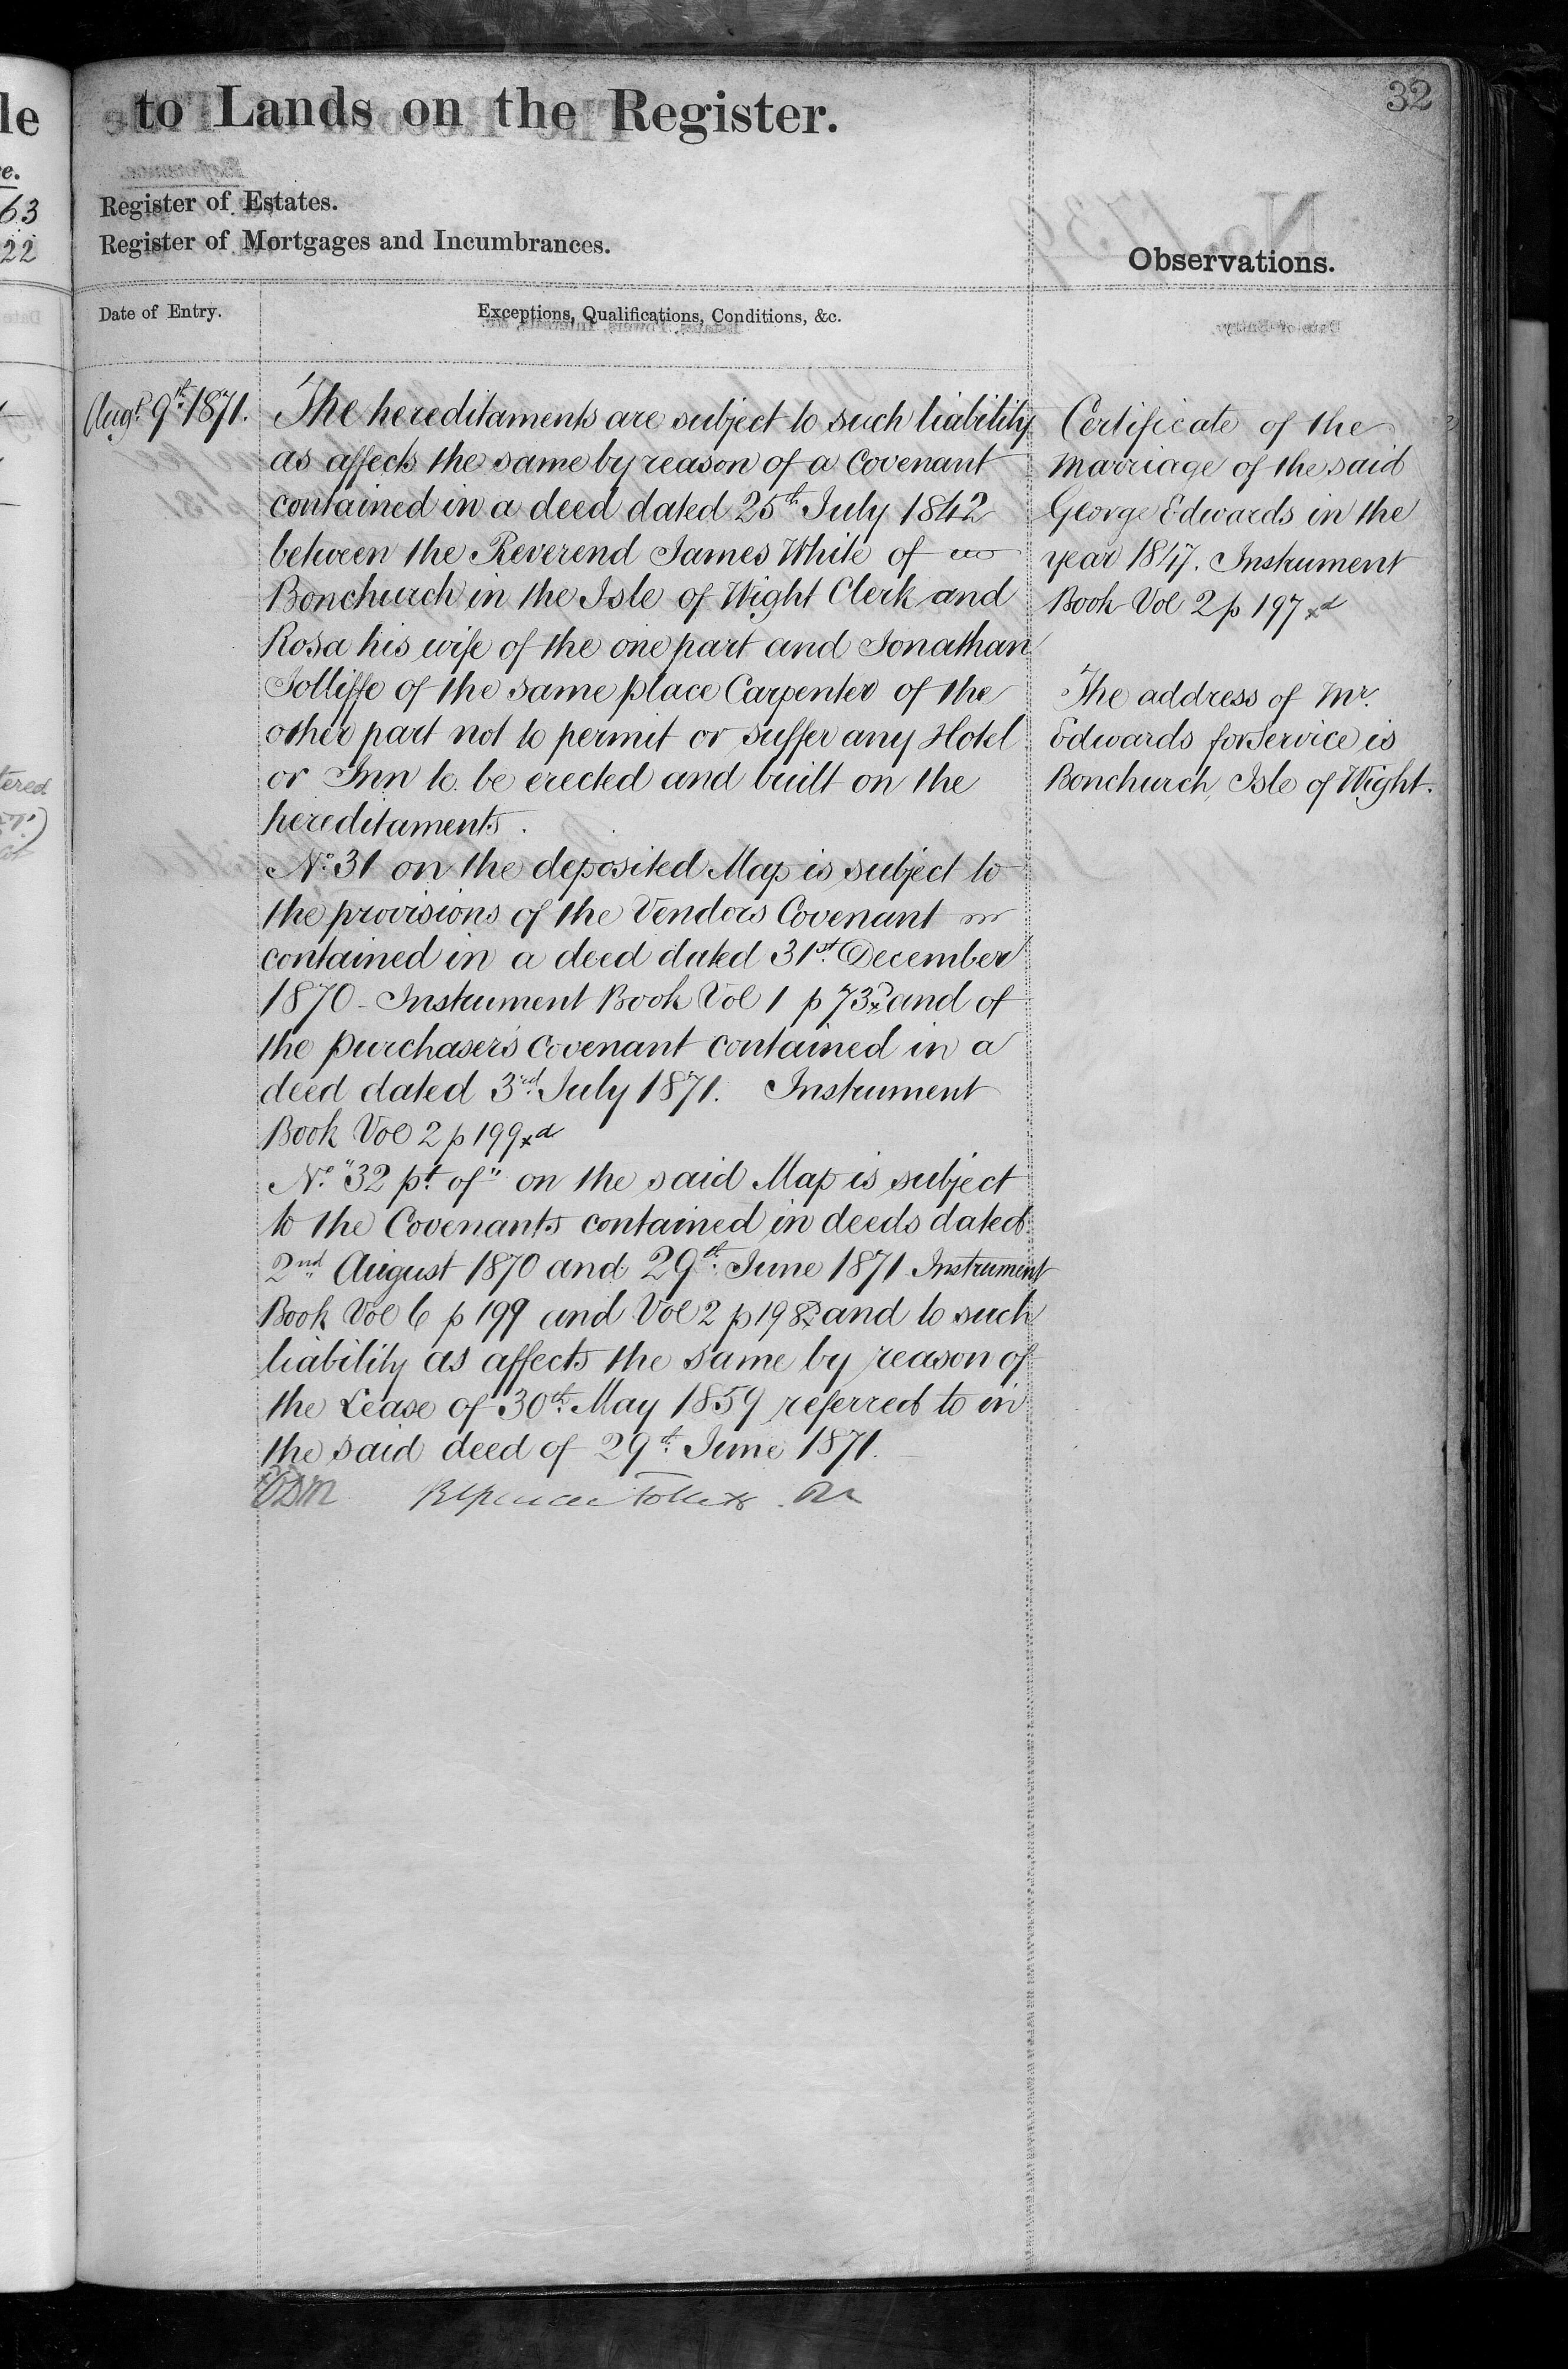 le
to Lands on the Register.
32
e.
63
22
Register of Estates.
Register of Mortgages and Incumbrances.
Observations.
Date of Entry.
Exceptions, Qualifications, Conditions, &c.
Augt. 9th. 1871.
The hereditaments are subject to such liability
as affects the same by reason of a Covenant
contained in a deed dated 25th July 1842
between the Reverend James White of
Bonchurch in the Isle of Wight Clerk and
Rosa his wife of the one part and Jonathan
Jolliffe of the same place Carpenter of the
other part not to permit or suffer any Hotel
or Inn to be erected and built on the
hereditaments.
No. 31 on the deposited Map is subject to
the provisions of the Vendors Covenant
contained in a deed dated 31st. December
1870 - Instrument Book Vol 1 p 73 and of
the purchasers covenant contained in a
deed dated 3rd. July 1871. Instrument
Book Vol 2 p 199 xd
No. "32 pt. of" on the said Map is subject
to the Covenants contained in deeds dated
2nd. August 1870 and 29th. June 1871 Instrument
Book Vol 6 p 199 and Vol 2 p 198 and to such
liability as affects the same by reason of
the Lease of 30th. May 1859 referred to in
the said deed of 29th. June 1871.
Certificate of the
marriage of the said
George Edwards in the
year 1847. Instrument
Book Vol 2 p 197 xd
The address of Mr.
Edwards for Service is
Bonchurch, Isle of Wight.
tered